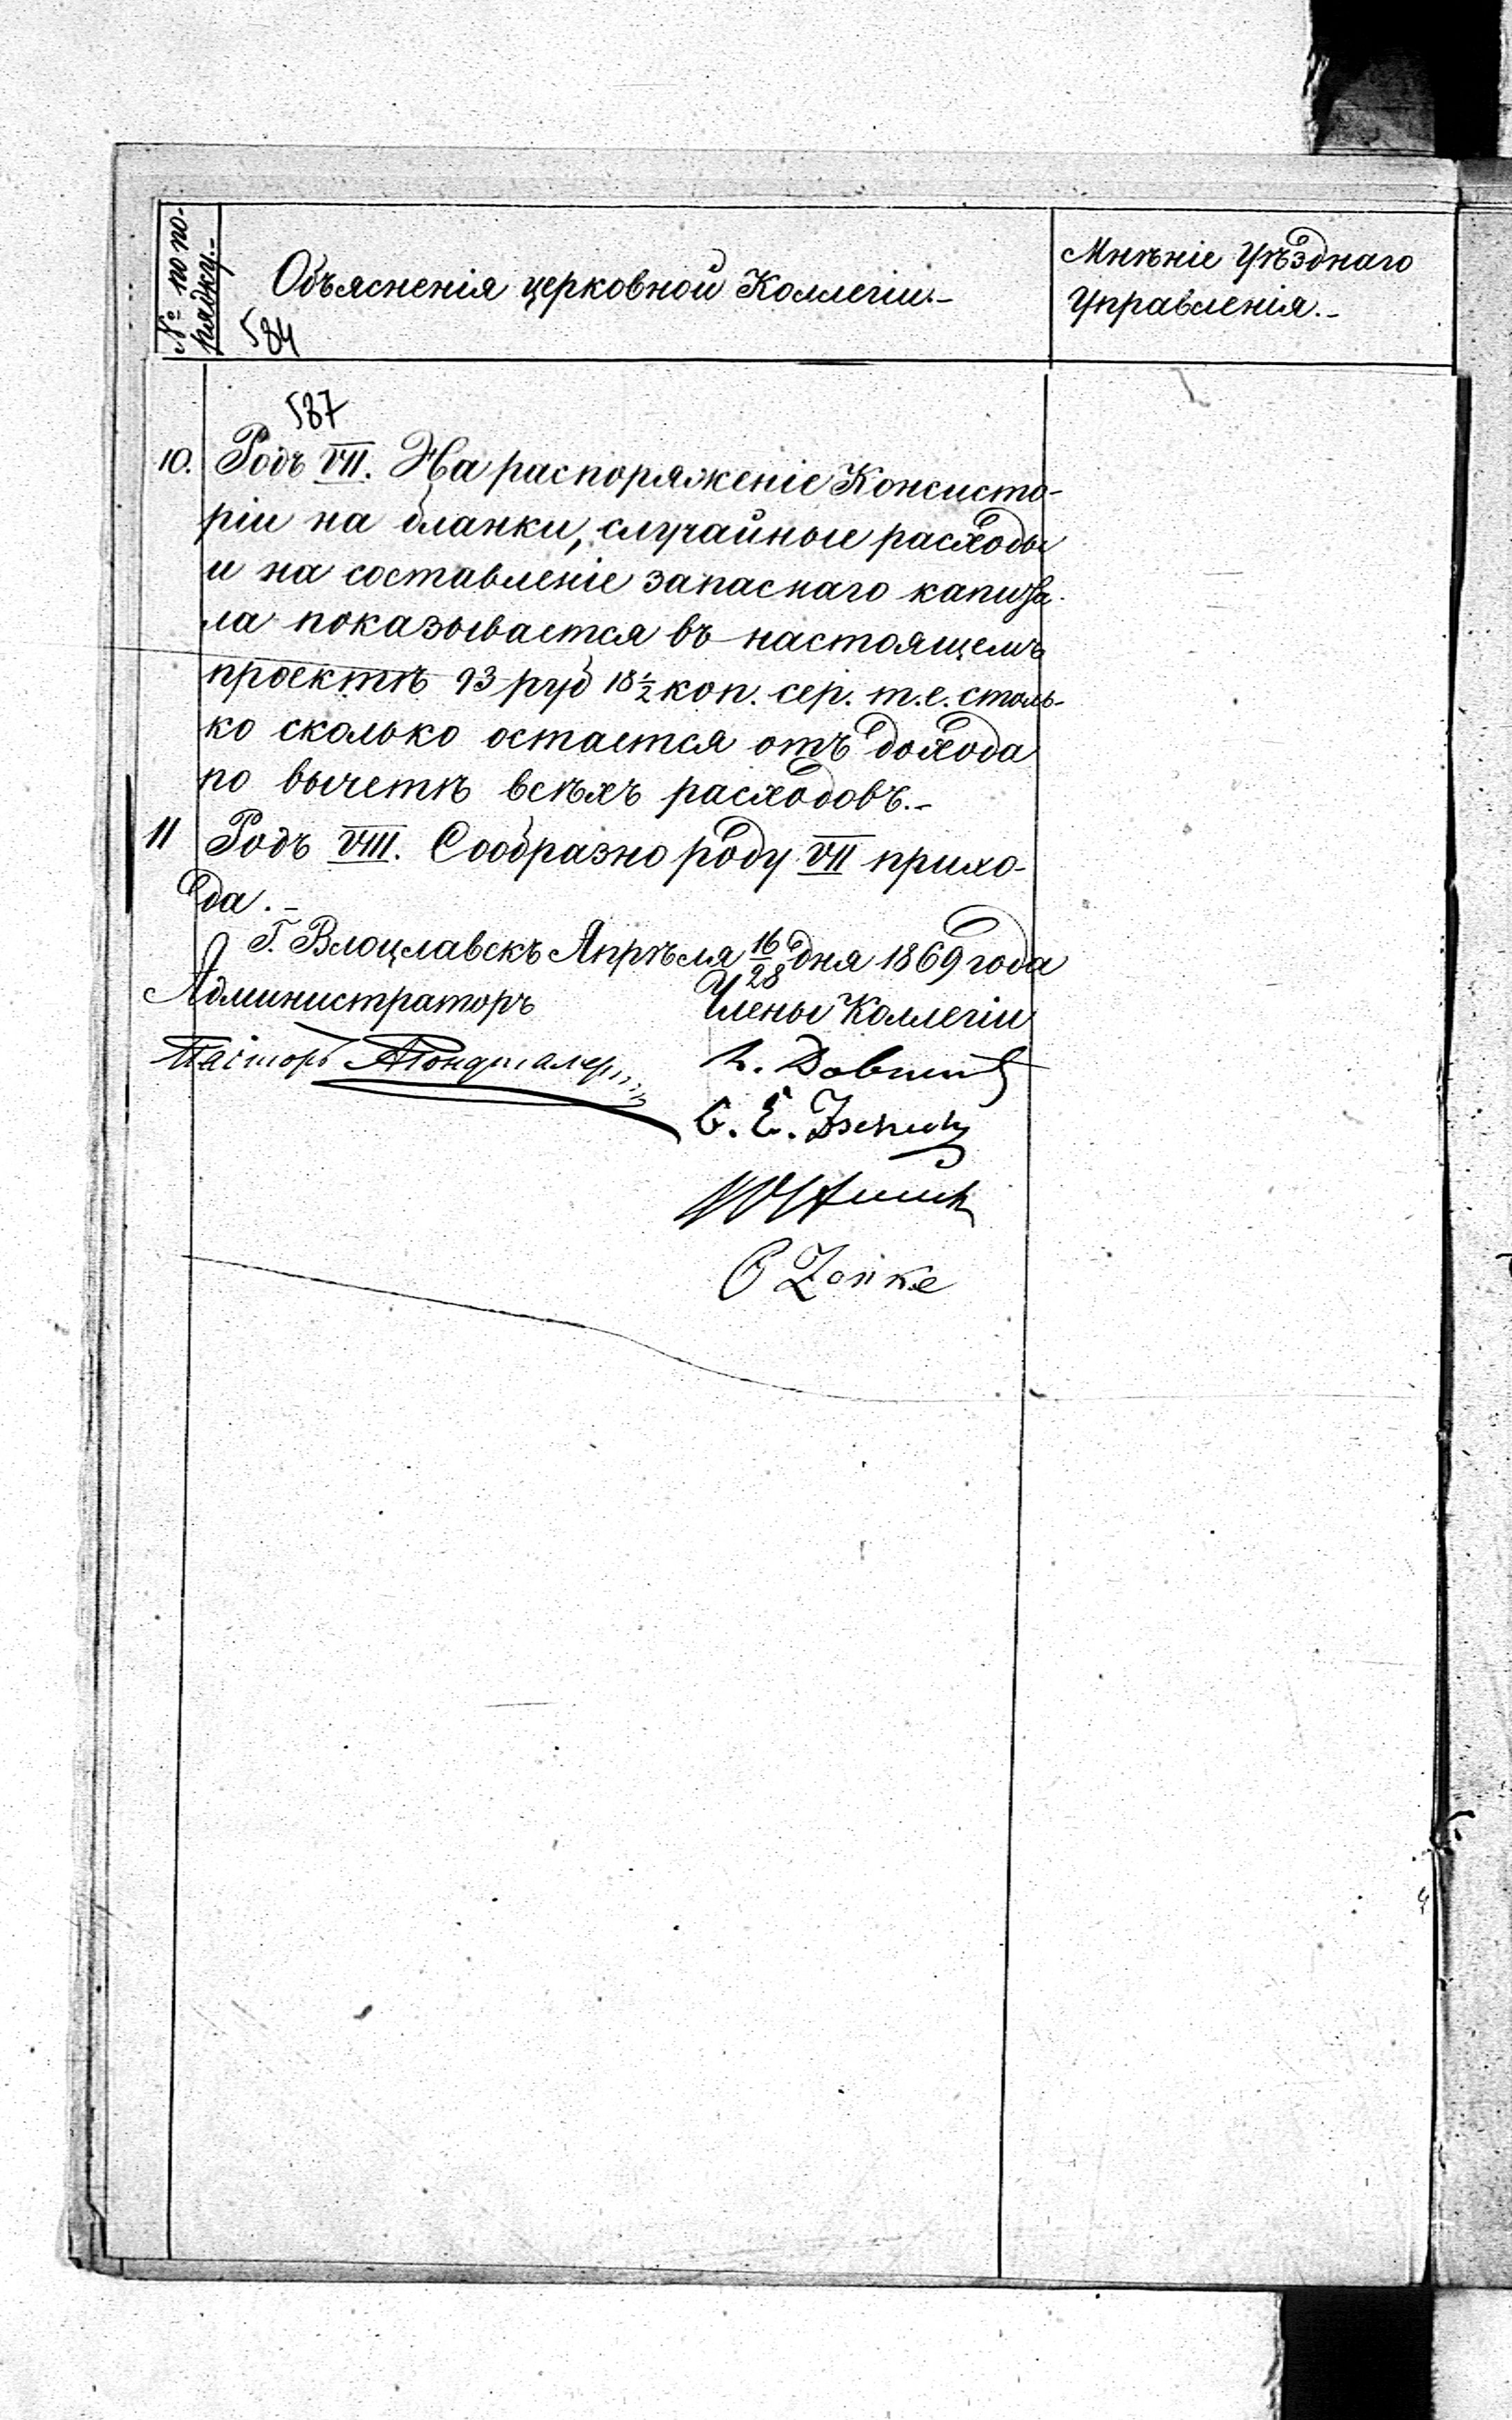 № по по-
рядку.-
Объясненія церковной Коллегіи.-
Мнѣніе Уѣзднаго
Управленія.-
584
587
10. Родъ VII. На распоряженіе Консисто-
ріи на бланки, случайные расходы
и на составленіе запаснаго капита-
ла показывается въ настоящемъ
проектѣ 93 руб 18 1/2 коп. сер. т.е. столь-
ко сколько остается отъ дохода
по вычетѣ всѣхъ расходовъ.-
11 Родъ VIII. Сообразно роду VII прихо-
да.-
Г. Влоцлавскъ Апрѣля 16/28 дня 1869 года
Администраторъ
Члены Коллегіи
Пасторъ
C. E.
Zonke